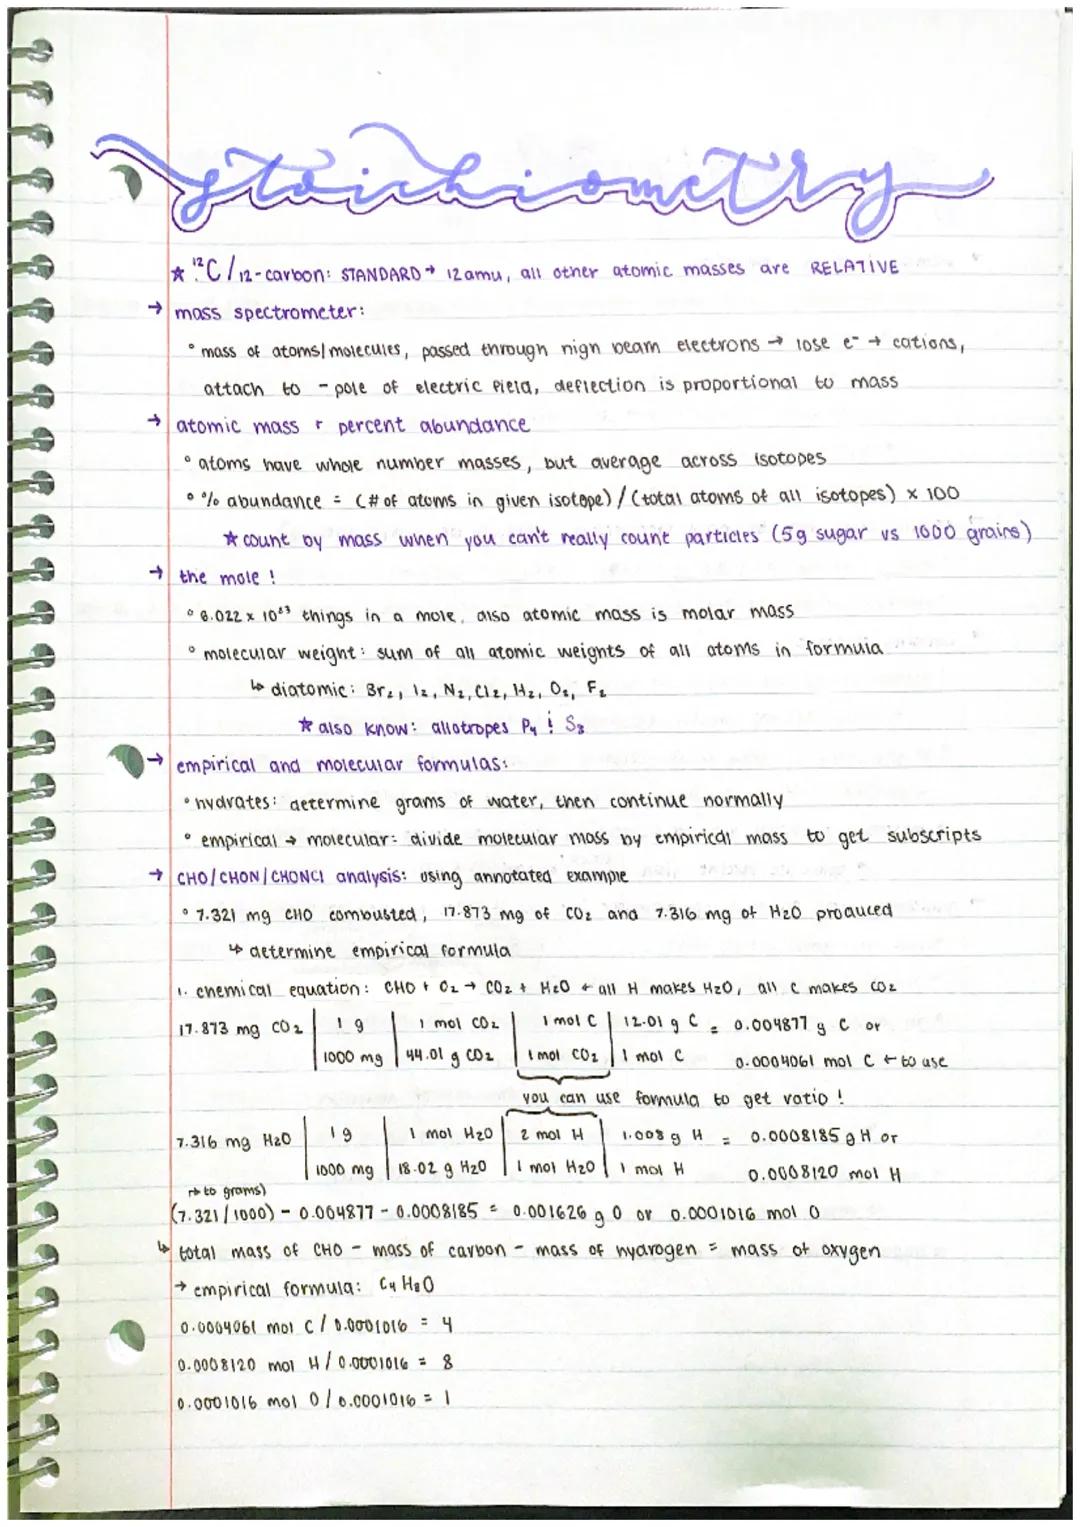 stoichiometry
★ ¹²C / 12-carbon: STANDARD → 12 amu, all other atomic masses are RELATIVE
→ mass spectrometer:
° mass of atoms/molecules, passed through high beam electrons → lose e⁻ → cations,
attach to - pole of electric field, deflection is proportional to mass
→ atomic mass + percent abundance
° atoms have whole number masses, but average across isotopes
° % abundance = (# of atoms in given isotope) / (total atoms of all isotopes) x 100
★ count by mass when you can't really count particles (5g sugar vs 1000 grains)
→ the mole !
° 6.022 x 10²³ things in a mole, also atomic mass is molar mass
° molecular weight: sum of all atomic weights of all atoms in formula
↳ diatomic: Br₂, I₂, N₂, Cl₂, H₂, O₂, F₂
★ also know: allotropes P₄ ! S₈
→ empirical and molecular formulas:
° hydrates: determine grams of water, then continue normally
° empirical → molecular: divide molecular mass by empirical mass to get subscripts
→ CHO/CHON/CHONCl analysis: using annotated example
° 7.321 mg CHO combusted, 17.873 mg of CO₂ and 7.316 mg of H₂O produced
↳ determine empirical formula
1. chemical equation: CHO + O₂ → CO₂ + H₂O ← all H makes H₂O, all C makes CO₂
17.873 mg CO₂ | 1 g | 1 mol CO₂ | 1 mol C | 12.01 g C = 0.004877 g C or
1000 mg | 44.01 g CO₂ | 1 mol CO₂ | 1 mol C 0.0004061 mol C ← to use
you can use formula to get ratio !
7.316 mg H₂O | 1 g | 1 mol H₂O | 2 mol H | 1.008 g H = 0.0008185 g H or
1000 mg | 18.02 g H₂O | 1 mol H₂O | 1 mol H 0.0008120 mol H
↱ to grams)
(7.321 / 1000) - 0.004877 - 0.0008185 = 0.001626 g O or 0.0001016 mol O
↳ total mass of CHO - mass of carbon - mass of hydrogen = mass of oxygen
→ empirical formula: C₄H₈O
0.0004061 mol C / 0.0001016 = 4
0.0008120 mol H / 0.0001016 = 8
0.0001016 mol O / 0.0001016 = 1